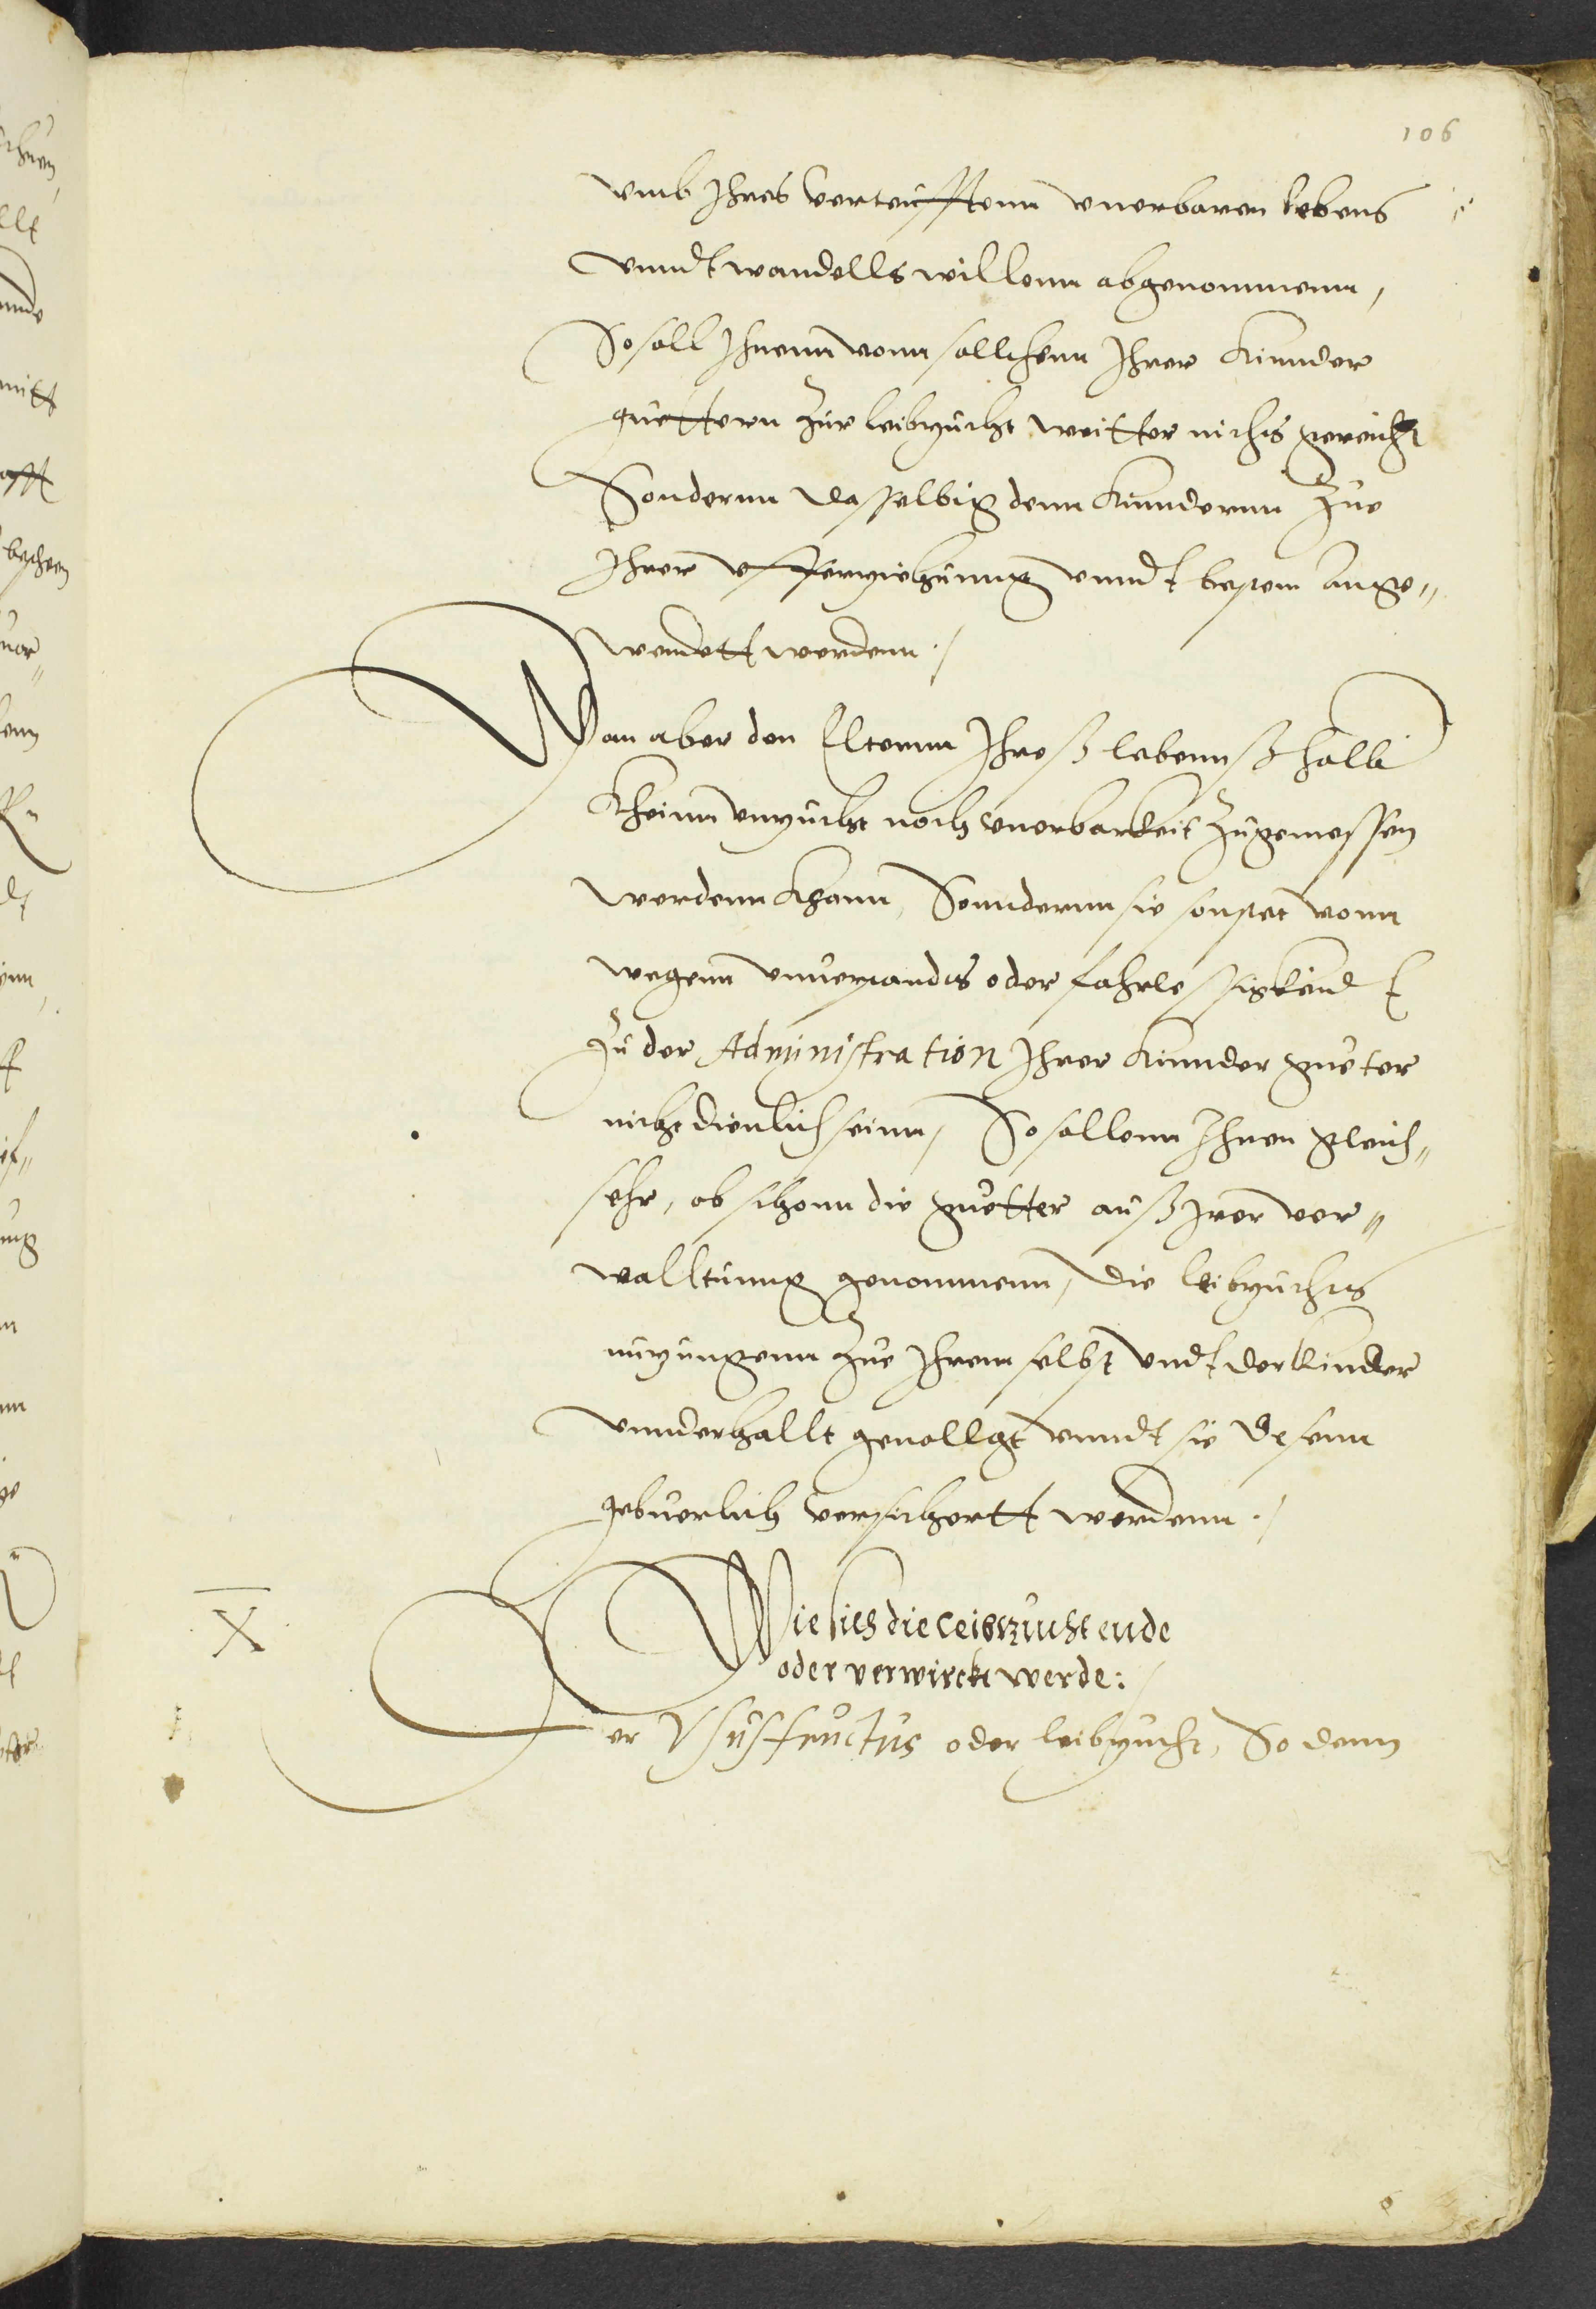 106
vmb Ihres verteufftenn vnerbaren lebens
vnndt wandells willenn abgenommenn,
So soll Ihnenn vonn sollichenn Ihrer Kinnder
guettern zur leibzucht weitter nichts gereicht
Sondernn dasselbig denn Kinndernn Zue
Ihrer vfferziehunng vnndt bestem ange„
wendett werdenn./
Wan aber den Elternn Ihreß lebennß halb
Kheinn vnzucht noch vnerbarkeit zugemessen
werdenn khann, Sonndernn sie sonstet vonn
wegenn vnuerstandts oder fahrlessigkeid
Zu der Administration Ihrer Kinnder gueter
nicht dienlich seinn, So sollenn Ihnen gleich„
sehr, ob schonn die guetter auß irer ver„
walltunng genommenn, die leibzuchts
nuzungenn Zue Ihrem selbst vndt der kinder
vnnderhallt geuollgt vnndt sie dessenn
gebuerlich versichertt werdenn./
X
Wie sich die Leibtzucht ende
oder verwirckt werde:
Der Vsusfructus oder leibzucht, So denn